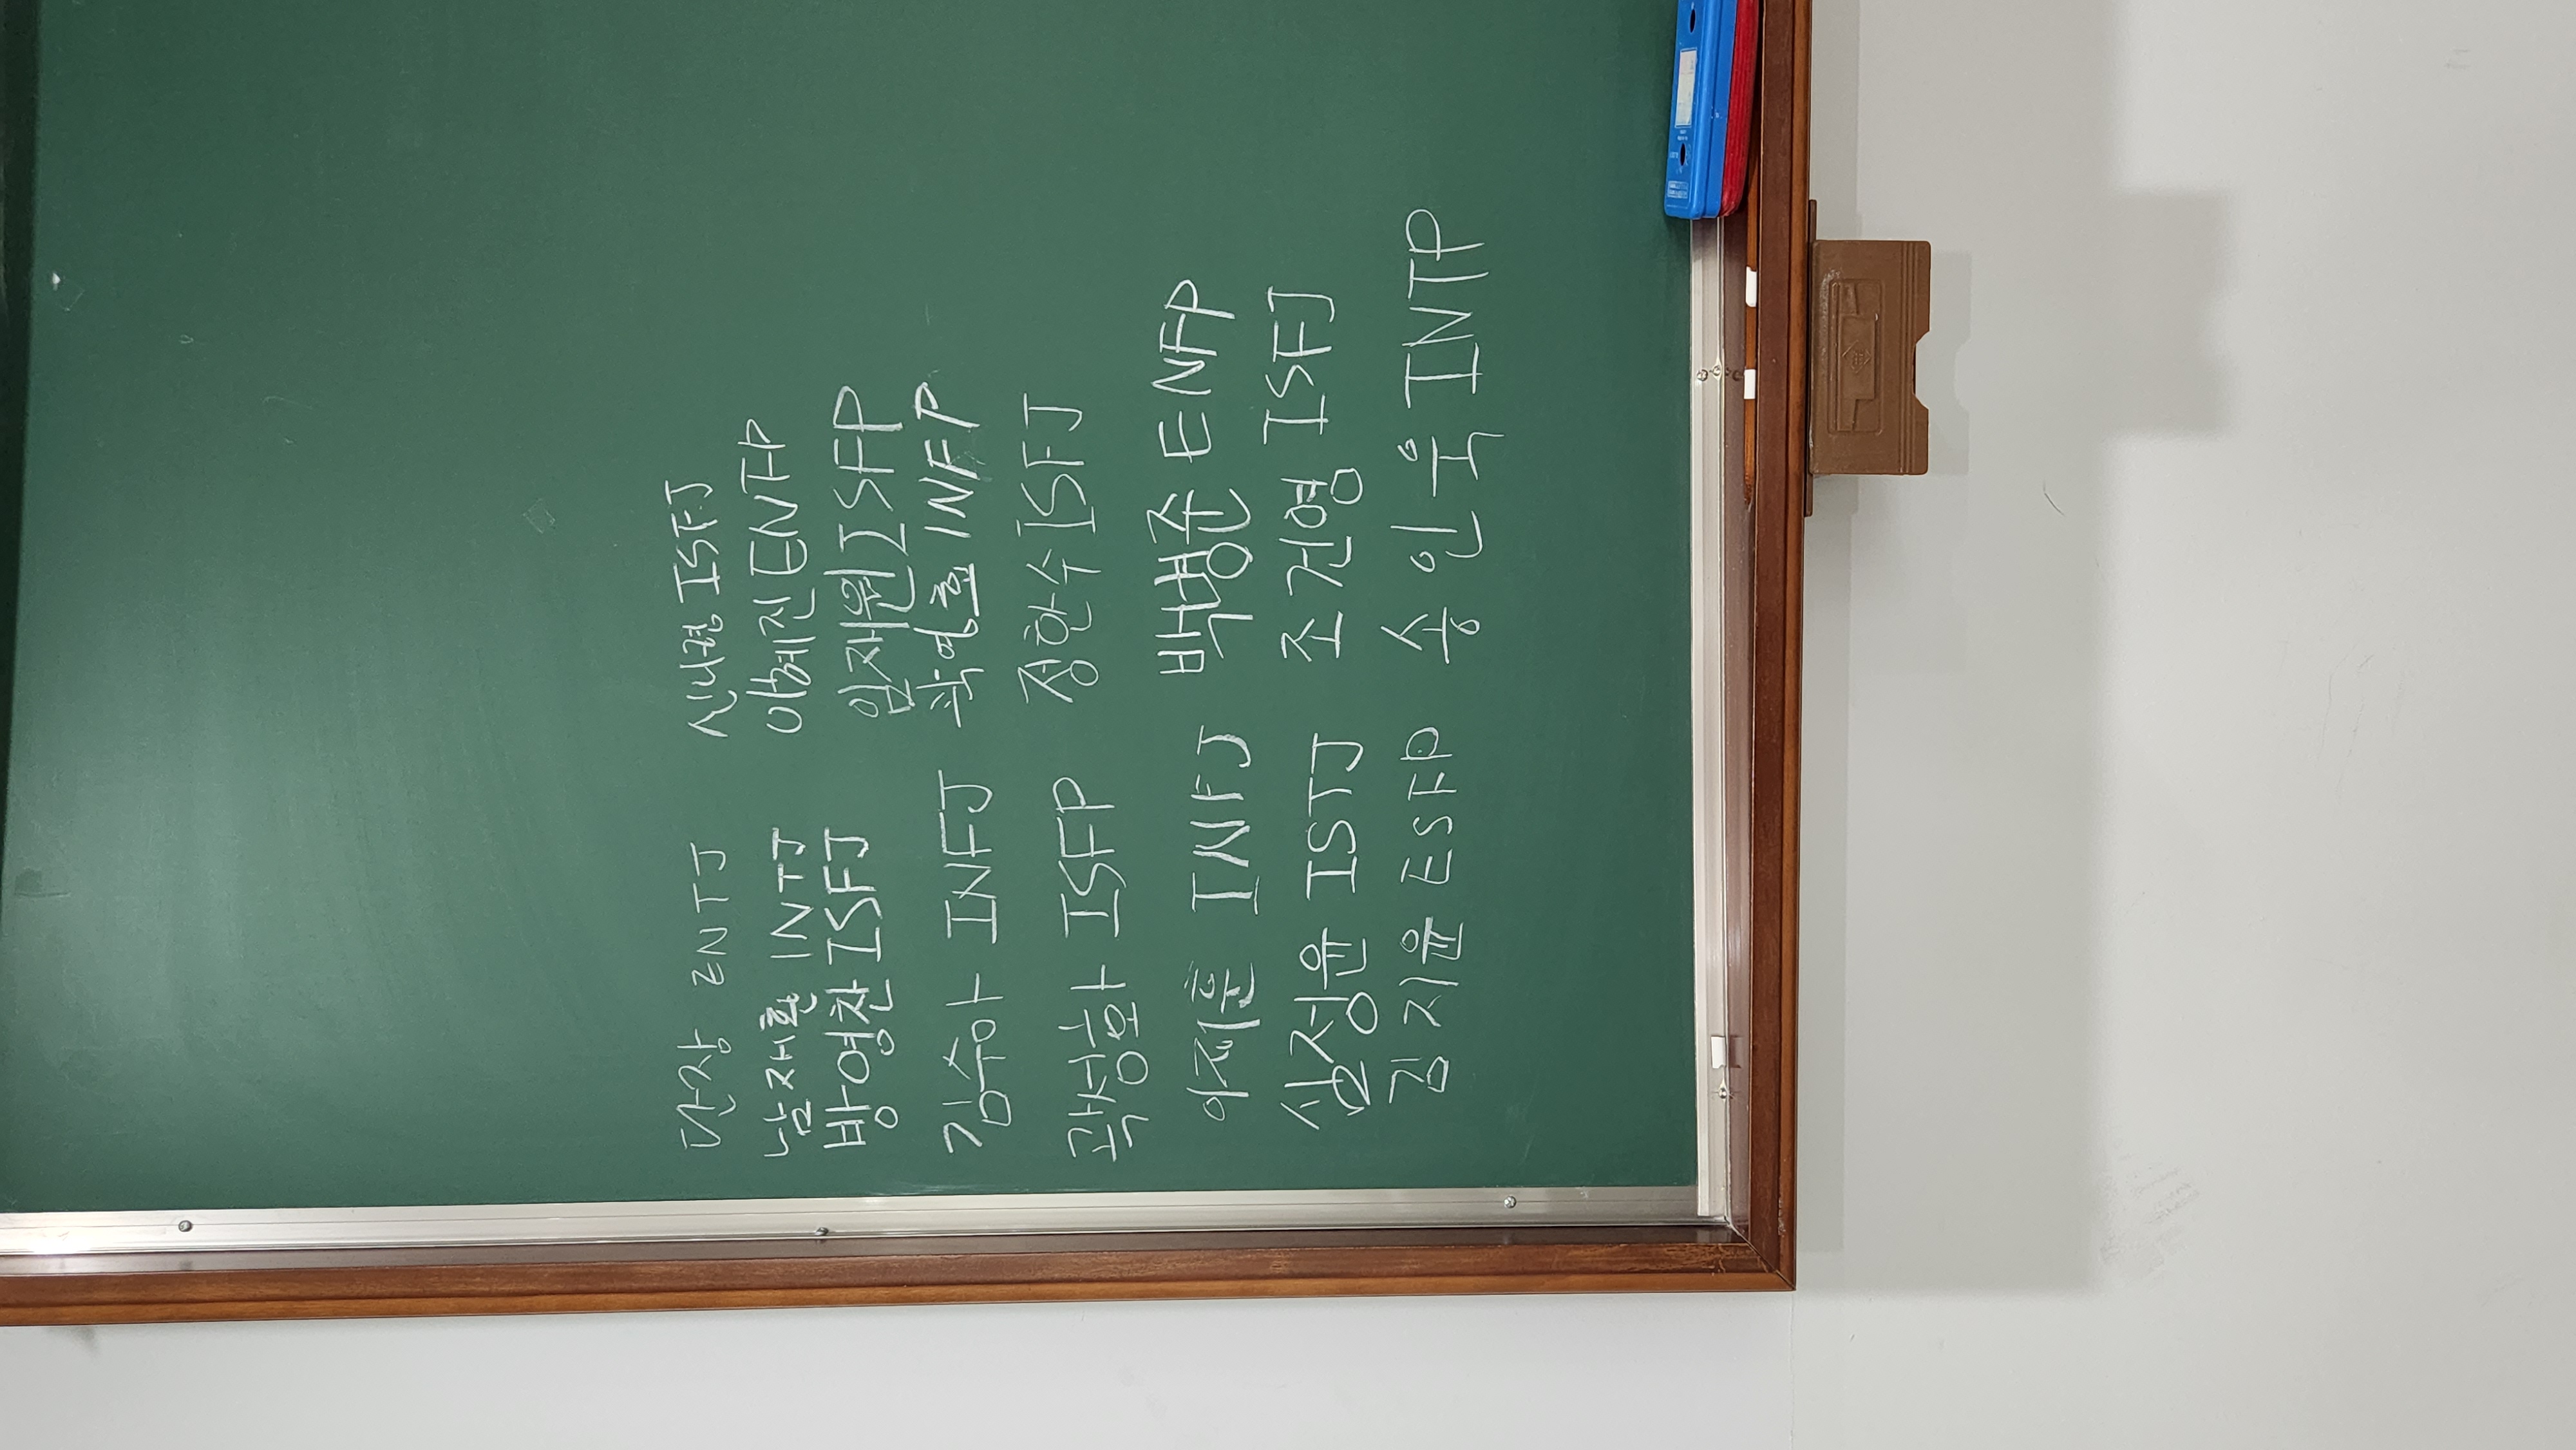 단장 ENTJ
남재환 INTJ
방영찬 ISFJ
김수아 INFJ
곽성화 ISFP
이재훈 INFJ
심정윤 ISTJ
김지윤 ESFP
신나령 ISFJ
이혜진 ENFP
임재원 ISFP
곽영호 INFP
정한수 ISFJ
백병준 ENFP
조건영 ISFJ
송인욱 INTP